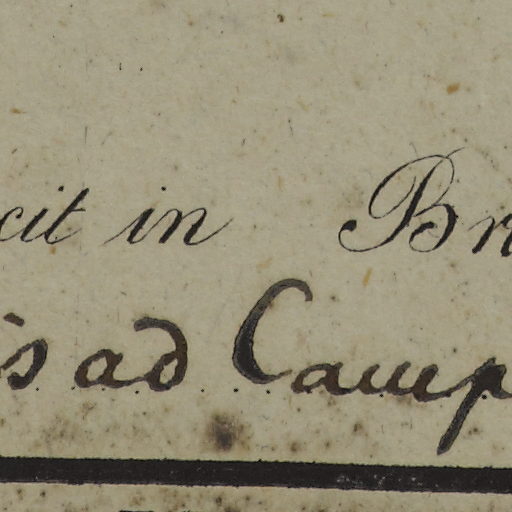 cit in Br
is ad Camp